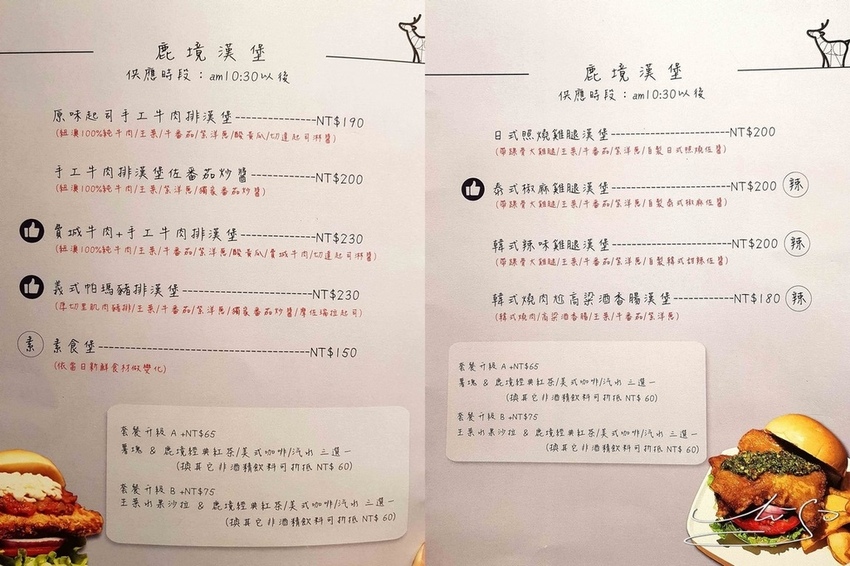 鹿境漢堡
供應時段：am10:30以後
原味起司手工牛肉排漢堡----------------NT$190
(紐澳100%純牛肉/生菜/牛番茄/紫洋蔥/酸黃瓜/切達起司淋醬)
手工牛肉排漢堡佐番茄炒醬-------------NT$200
(紐澳100%純牛肉/生菜/紫洋蔥/獨家番茄炒醬)
費城牛肉+手工牛肉排漢堡---------------NT$230
(紐澳100%純牛肉/生菜/牛番茄/紫洋蔥/酸黃瓜/費城牛肉/切達起司淋醬)
義式帕瑪豬排漢堡--------------------------NT$230
(厚切里肌肉豬排/生菜/牛番茄/紫洋蔥/獨家番茄炒醬/摩佐瑞拉起司)
素 素食堡------------------------------------------NT$150
(依當日新鮮食材做變化)
套餐升級 A +NT$65
薯塊 & 鹿境經典紅茶/美式咖啡/汽水 三選一
(換其它非酒精飲料可折抵 NT$ 60)
套餐升級 B +NT$75
生菜水果沙拉 & 鹿境經典紅茶/美式咖啡/汽水 三選一
(換其它非酒精飲料可折抵 NT$ 60)
鹿境漢堡
供應時段：am10:30以後
日式照燒雞腿漢堡------------------------NT$200
(帶膝骨大雞腿/生菜/牛番茄/紫洋蔥/自製日式照燒佐醬)
泰式椒麻雞腿漢堡------------------------NT$200 辣
(帶膝骨大雞腿/生菜/牛番茄/紫洋蔥/自製泰式椒麻佐醬)
韓式辣味雞腿漢堡------------------------NT$200 辣
(帶膝骨大雞腿/生菜/牛番茄/紫洋蔥/自製韓式甜辣佐醬)
韓式燒肉尬高粱酒香腸漢堡------------NT$180 辣
(韓式燒肉/高粱酒香腸/生菜/牛番茄/紫洋蔥)
套餐升級 A +NT$65
薯塊 & 鹿境經典紅茶/美式咖啡/汽水 三選一
(換其它非酒精飲料可折抵 NT$ 60)
套餐升級 B +NT$75
生菜水果沙拉 & 鹿境經典紅茶/美式咖啡/汽水 三選一
(換其它非酒精飲料可折抵 NT$ 60)